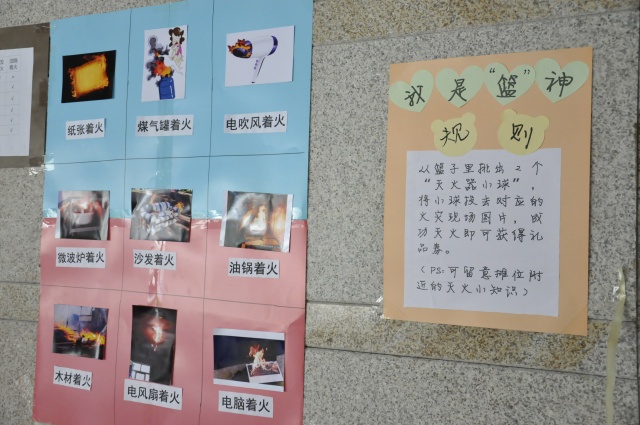 纸张着火
煤气罐着火
电吹风着火
微波炉着火
沙发着火
油锅着火
木材着火
电风扇着火
电脑着火
我是“篮”神
规则
从篮子里挑出2个
“灭火器小球”,
将小球投去对应的
火灾现场图片,成
功灭火即可获得礼
品券。
(PS:可留意摊位附
近的灭火小知识)